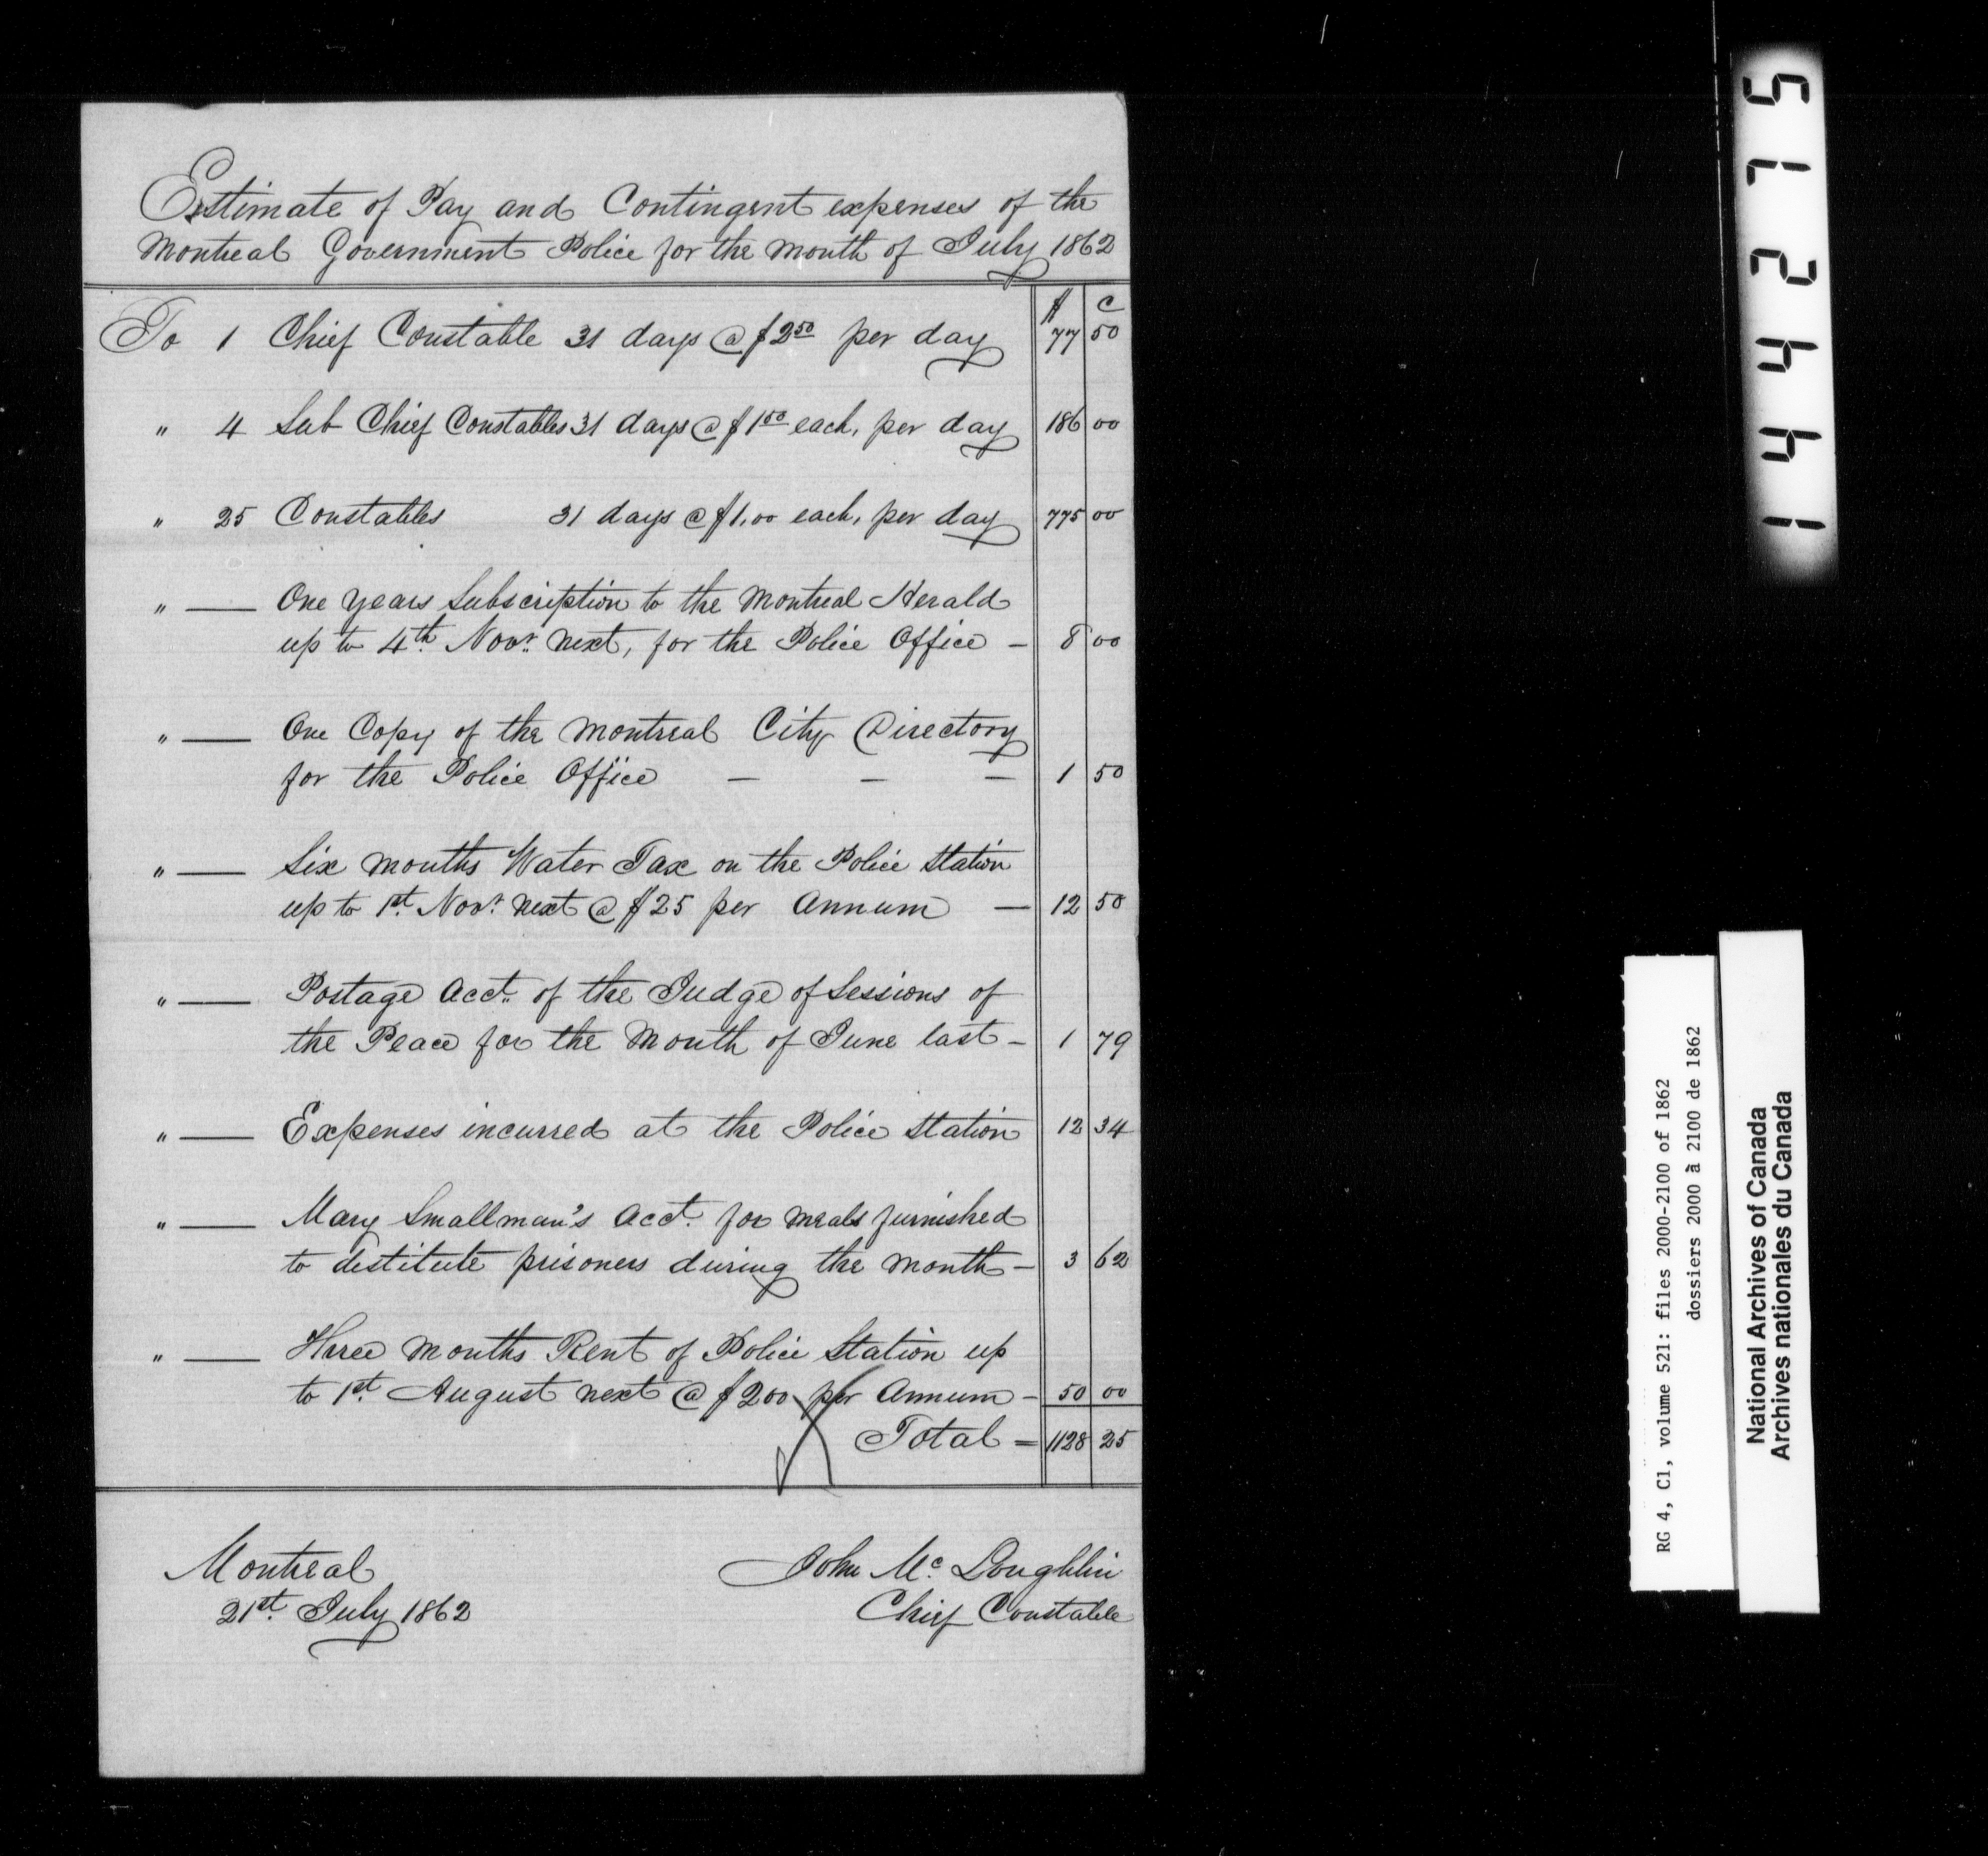 Estimate of Pay and Contingent expenses of the
Montreal Government Police for the month of July 1862
$ c
To 1 Chief Constable 31 days @ $2.50 per day 77 50
" 4 Sub Chief Constables 31 days @ $1.50 each, per day 186 00
" 25 Constables 31 days @ $1.00 each, per day 775 00
" — One years Subscription to the Montreal Herald
up to 4th Novr. next, for the Police Office — 8 00
" — One Copy of the Montreal City Directory
for the Police Office — — — 1 50
" — Six months Water Tax on the Police Station
up to 1st Novr. next @ $25 per Annum — 12 50
" — Postage Acct. of the Judge of Sessions of
the Peace for the Month of June last — 1 79
" — Expenses incurred at the Police Station 12 34
" — Mary Smallman's Acct. for meals furnished
to destitute prisoners during the month — 3 62
" — Three months Rent of Police Station up
to 1st August next @ $200 per Annum — 50 00
Total = 1128 25
Montreal
21st July 1862
John Mc Loughlin
Chief Constable
144215
RG 4, C1, volume 521: files 2000-2100 of 1862
dossiers 2000 à 2100 de 1862
National Archives of Canada
Archives nationales du Canada